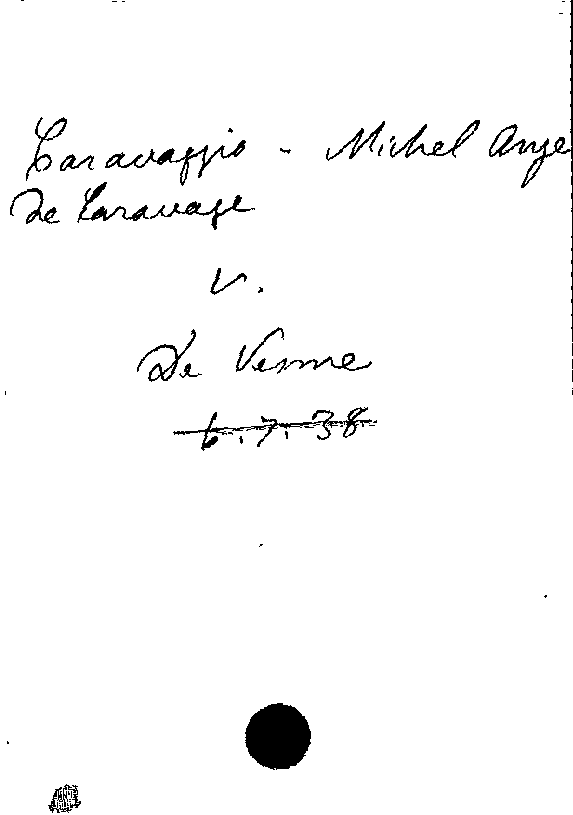 Caravaggio - Michel Ange
De Caravage
V.
De Vesme
6.7.38